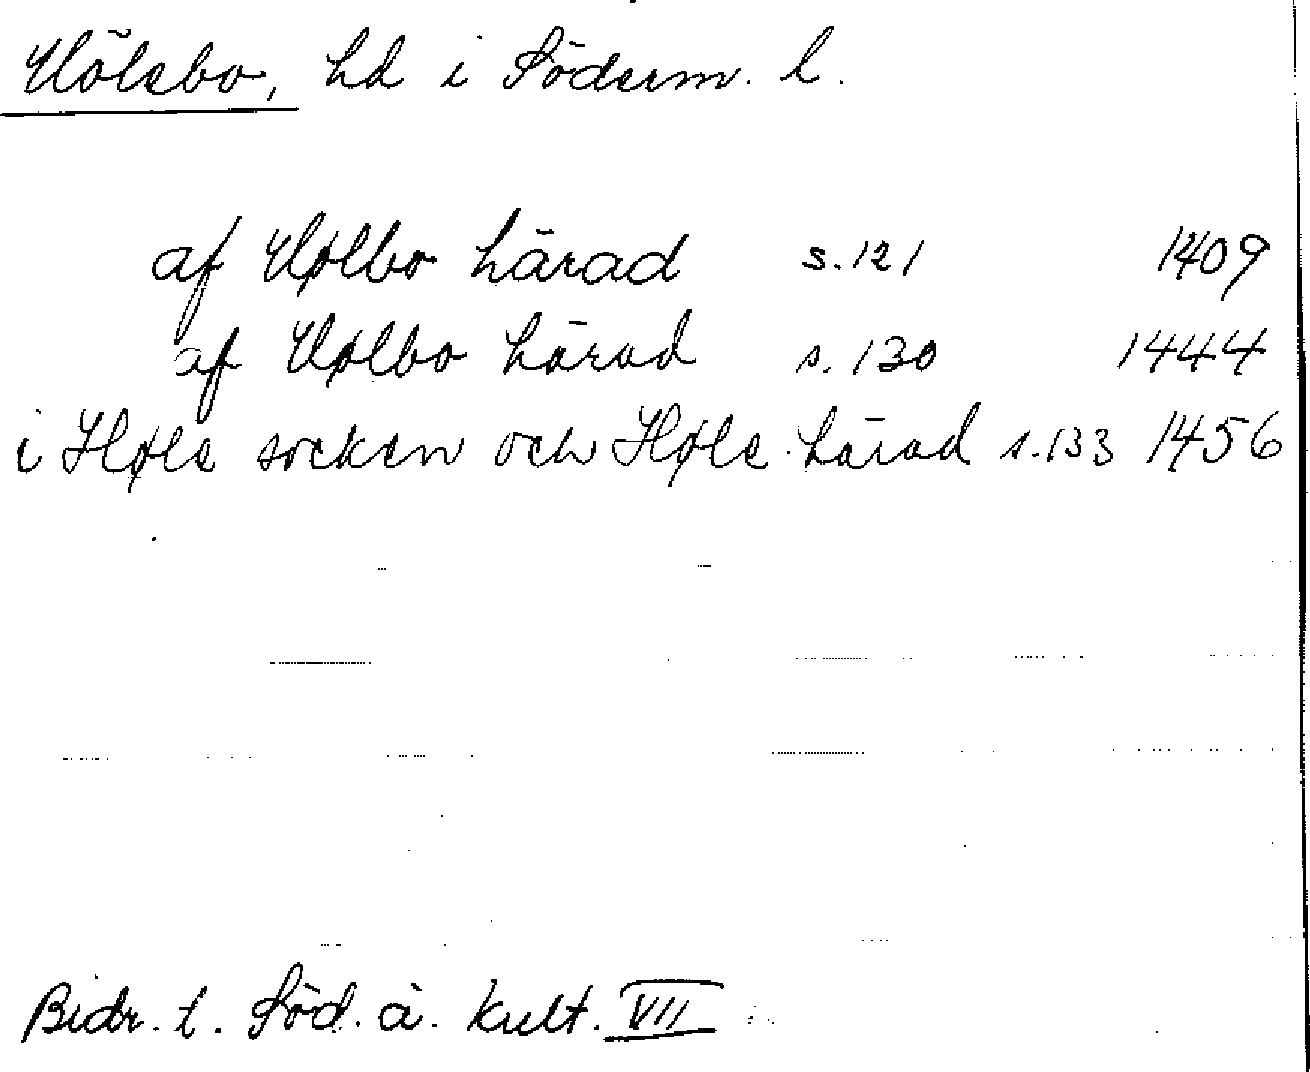 Hölebo, hd i Söderm. l.
af Hølbo härad s. 121 1409
af Hølbo härad s. 130 1444
i Høle socken och Høle härad s. 133 1456
Bidr. t. Söd. ä. kult. VII